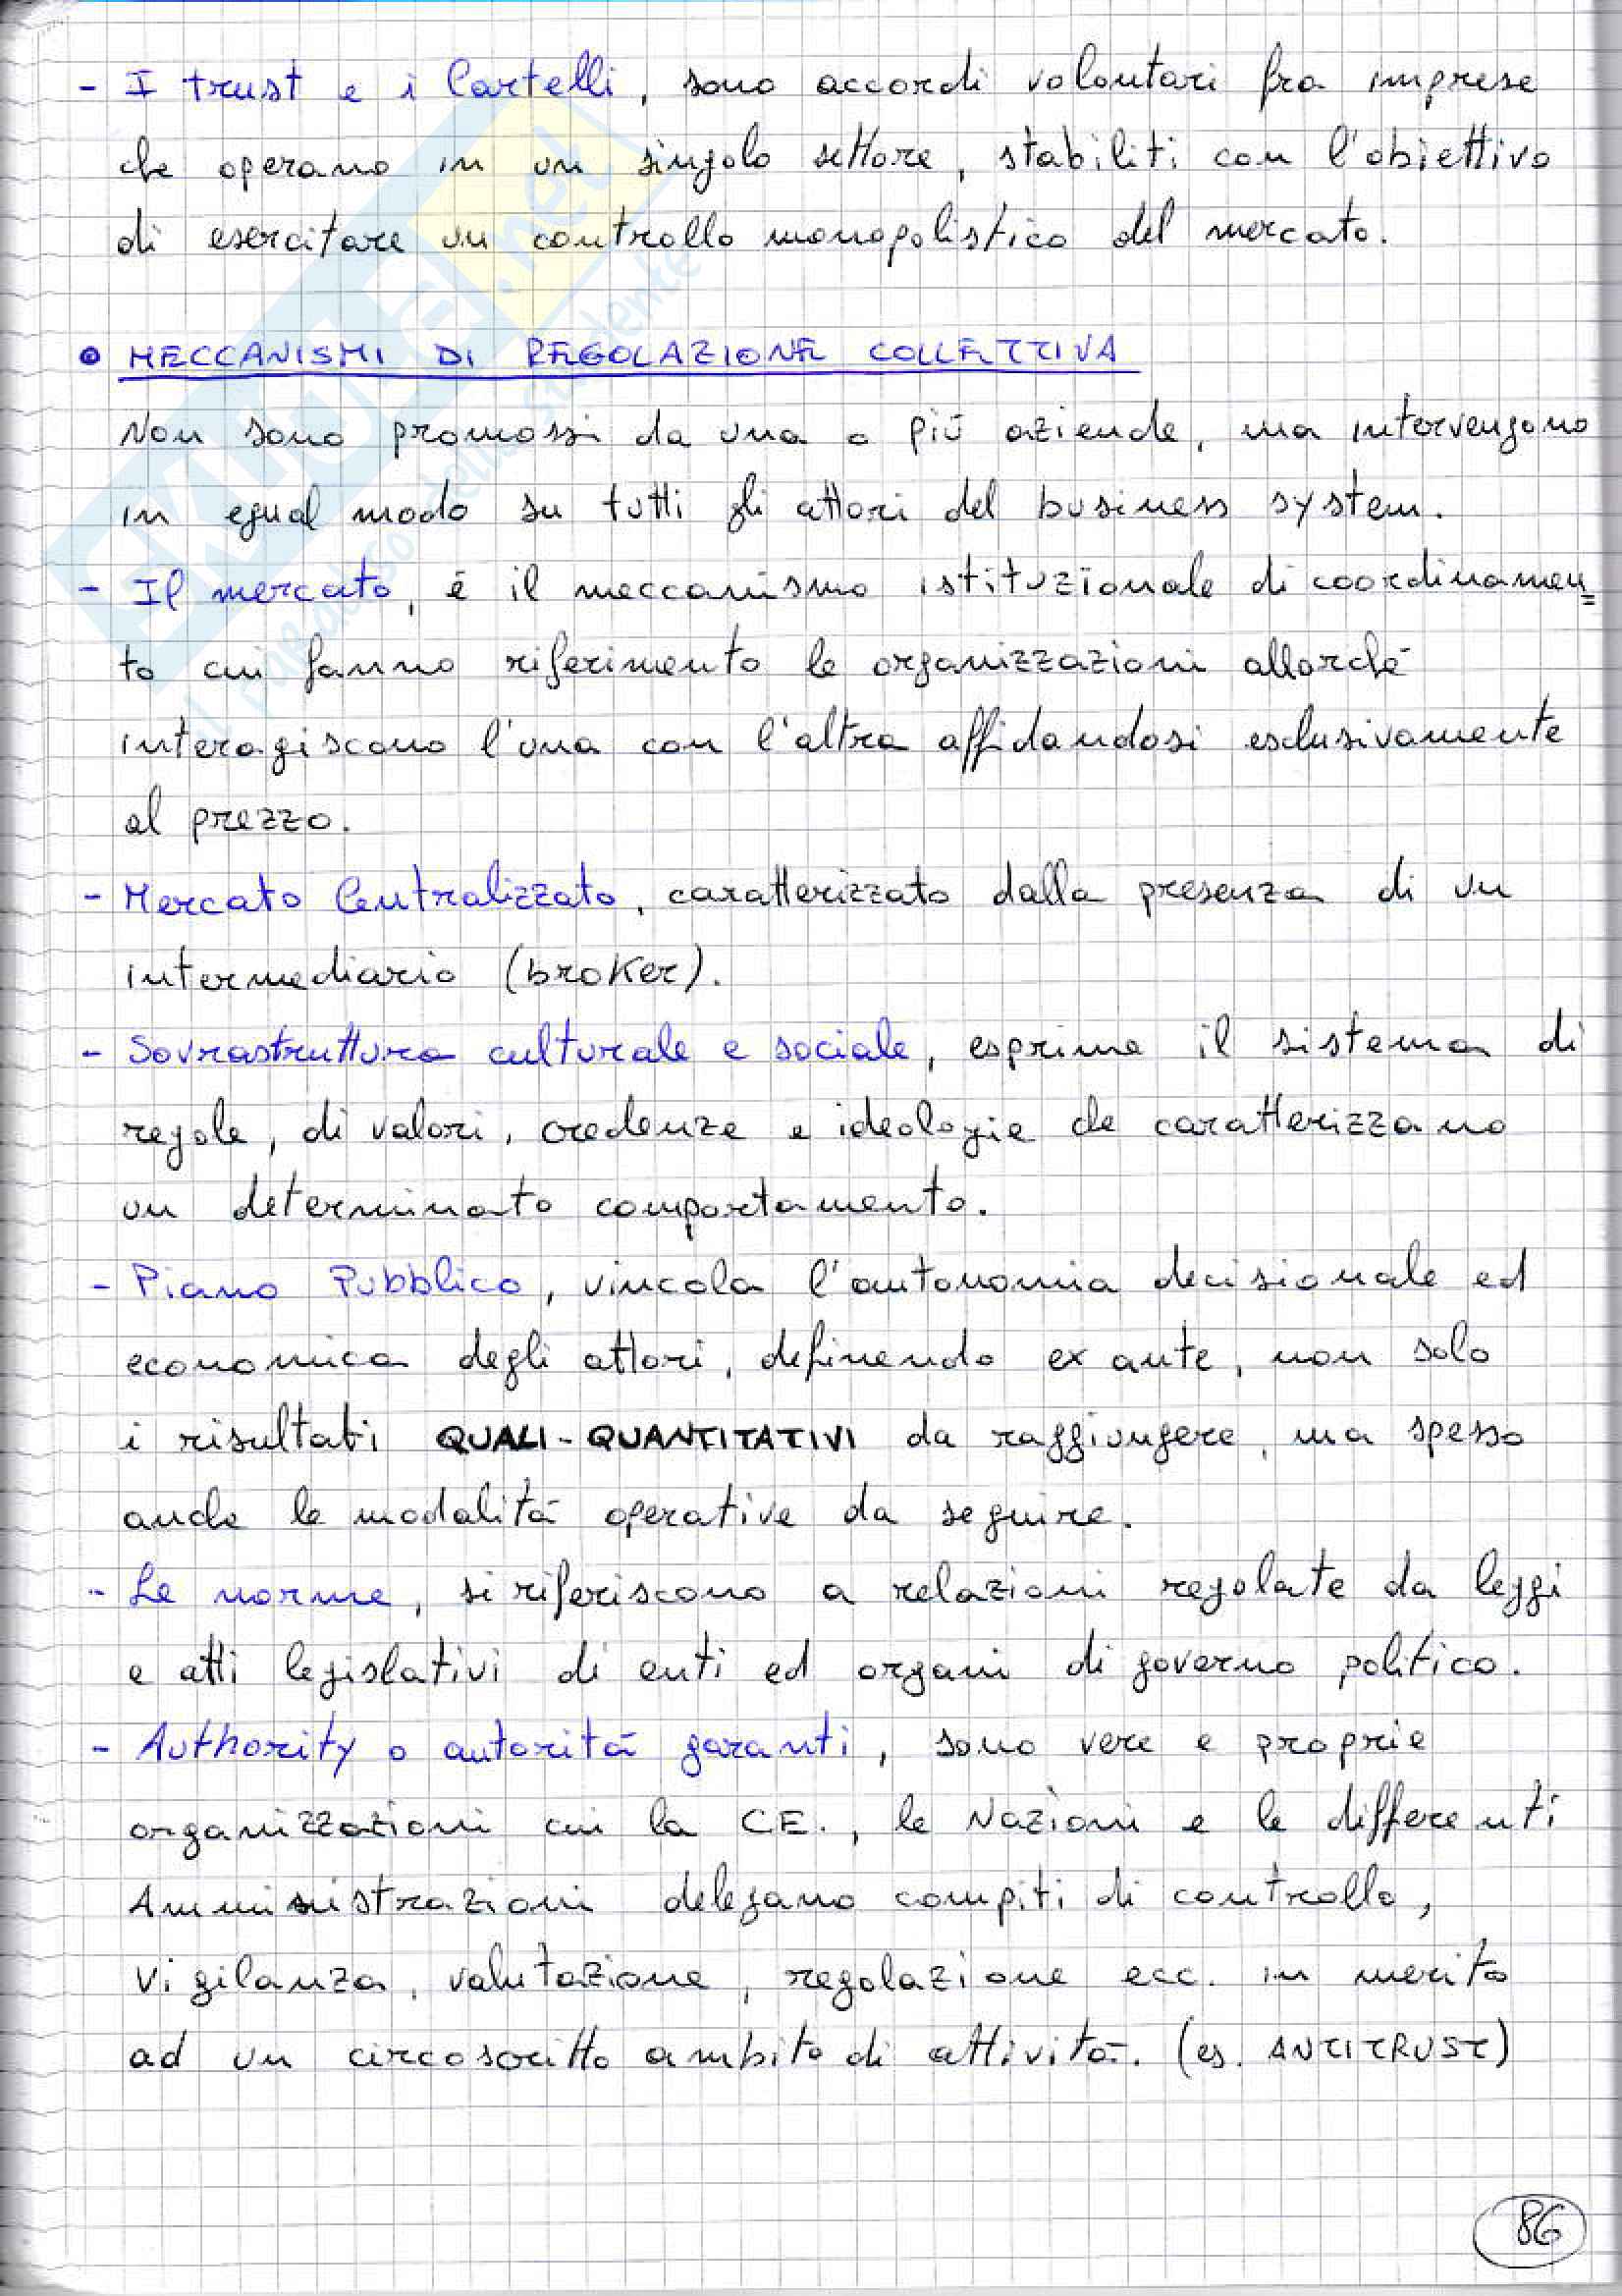 - I trust e i Cartelli, sono accordi volontari fra imprese
che operano in un singolo settore, stabiliti con l'obiettivo
di esercitare un controllo monopolistico del mercato.
• MECCANISMI DI REGOLAZIONE COLLETTIVA
Non sono promossi da una o più aziende, ma intervengono
in egual modo su tutti gli attori del business system.
- Il mercato, è il meccanismo istituzionale di coordinamen=
to cui fanno riferimento le organizzazioni allorché
interagiscono l'una con l'altra affidandosi esclusivamente
al prezzo.
- Mercato Centralizzato, caratterizzato dalla presenza di un
intermediario (broker).
- Sovrastruttura culturale e sociale, esprime il sistema di
regole, di valori, credenze e ideologie che caratterizzano
un determinato comportamento.
- Piano Pubblico, vincola l'autonomia decisionale ed
economica degli attori, definendo ex ante, non solo
i risultati QUALI-QUANTITATIVI da raggiungere, ma spesso
anche le modalità operative da seguire.
- Le norme, si riferiscono a relazioni regolate da leggi
e atti legislativi di enti ed organi di governo politico.
- Authority o autorità garanti, sono vere e proprie
organizzazioni cui la C.E., le Nazioni e le differenti
Amministrazioni delegano compiti di controllo,
vigilanza, valutazione, regolazione ecc. in merito
ad un circoscritto ambito di attività. (es. ANTITRUST)
86
SKUOLA.net
il paradiso dello studente